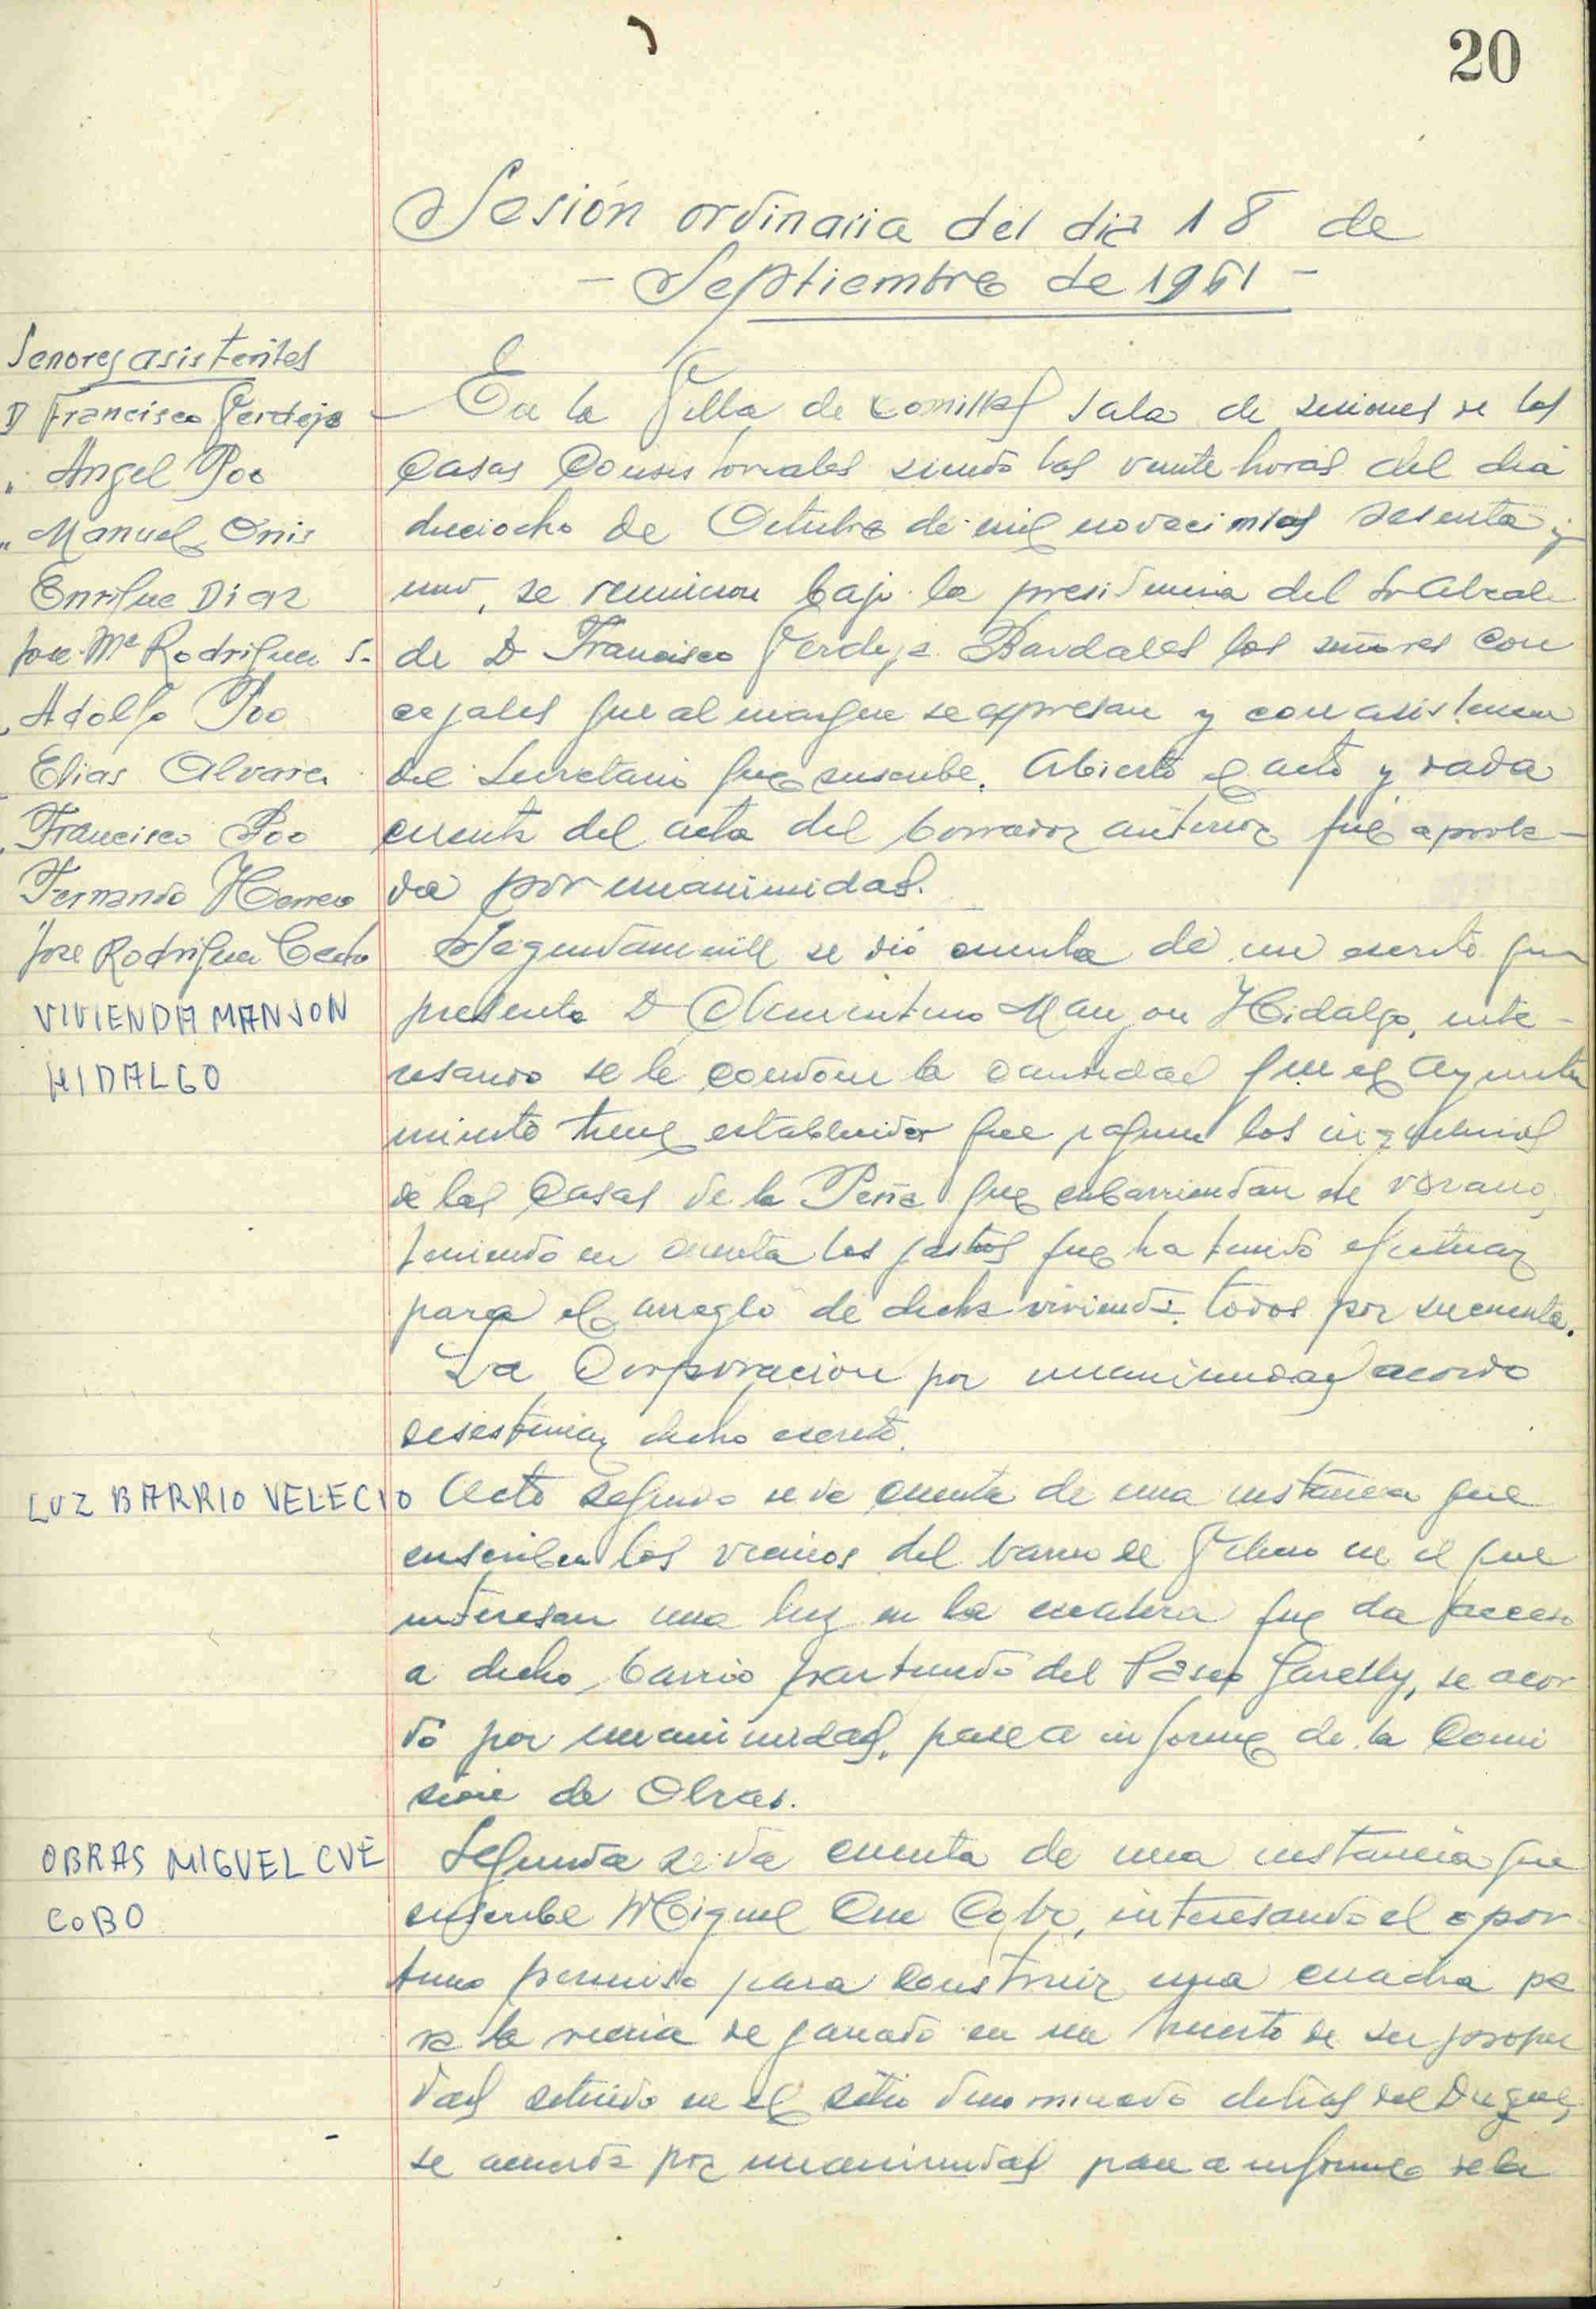 20
Sesión ordinaria del dia 18 de
- Septiembre de 1961 -
Senores asistentes
D Francisco Verdeja
" Angel Poo
" Manuel Onis
Enrique Diaz
Jose Mª Rodriguez S.
" Adolfo Poo
Elias Alvarez
" Francisco Poo
Fernando Herrero
Jose Rodriguez
En la Villa de Comillas sala de sesiones de las
Casas Consistoriales siendo las veinte horas del dia
dieciocho de Octubre de mil novecientos sesenta y
uno, se reunieron bajo la presidencia del Sr Alcal
de D Francisco Verdeja Bardales los señores con
cejales que al margen se expresan y con asistencia
del Secretario que suscribe. Abierto el acto y dada
cuenta del acta del borrador anterior fué aproba-
da por unanimidad.
VIVIENDA MANJON
HIDALGO
Segundamente se dió cuenta de un escrito que
presenta D Clementino Manjon Hidalgo, inte-
resando se le condone la cantidad que el Ayunta
miento tiene establecido que paguen los inquilinos
de las Casas de la Peña que subarriendan de verano,
teniendo en cuenta los gastos que ha tenido efectuar
para el arreglo de dicha vivienda, todos por su cuenta.
La Corporacion por unanimidad acordo
desestimar dicho escrito.
LUZ BARRIO VELECIO
Acto segundo se da cuenta de una instancia que
suscriben los vecinos del barrio de Velecio en el que
interesan una luz en la escalera que da acceso
a dicho barrio partiendo del Paseo Garelly, se acor
dó por unanimidad, pase a informe de la Comi
sion de Obras.
OBRAS MIGUEL CUE
COBO
Segunda se da cuenta de una instancia que
suscribe Miguel Cue Cobo, interesando el opor
tuno permiso para construir una cuadra pa
ra la recria de ganado en un huerto de su propie
dad situado en el sitio denominado detras del Duque,
se acuerda por unanimidad pase a informe de la